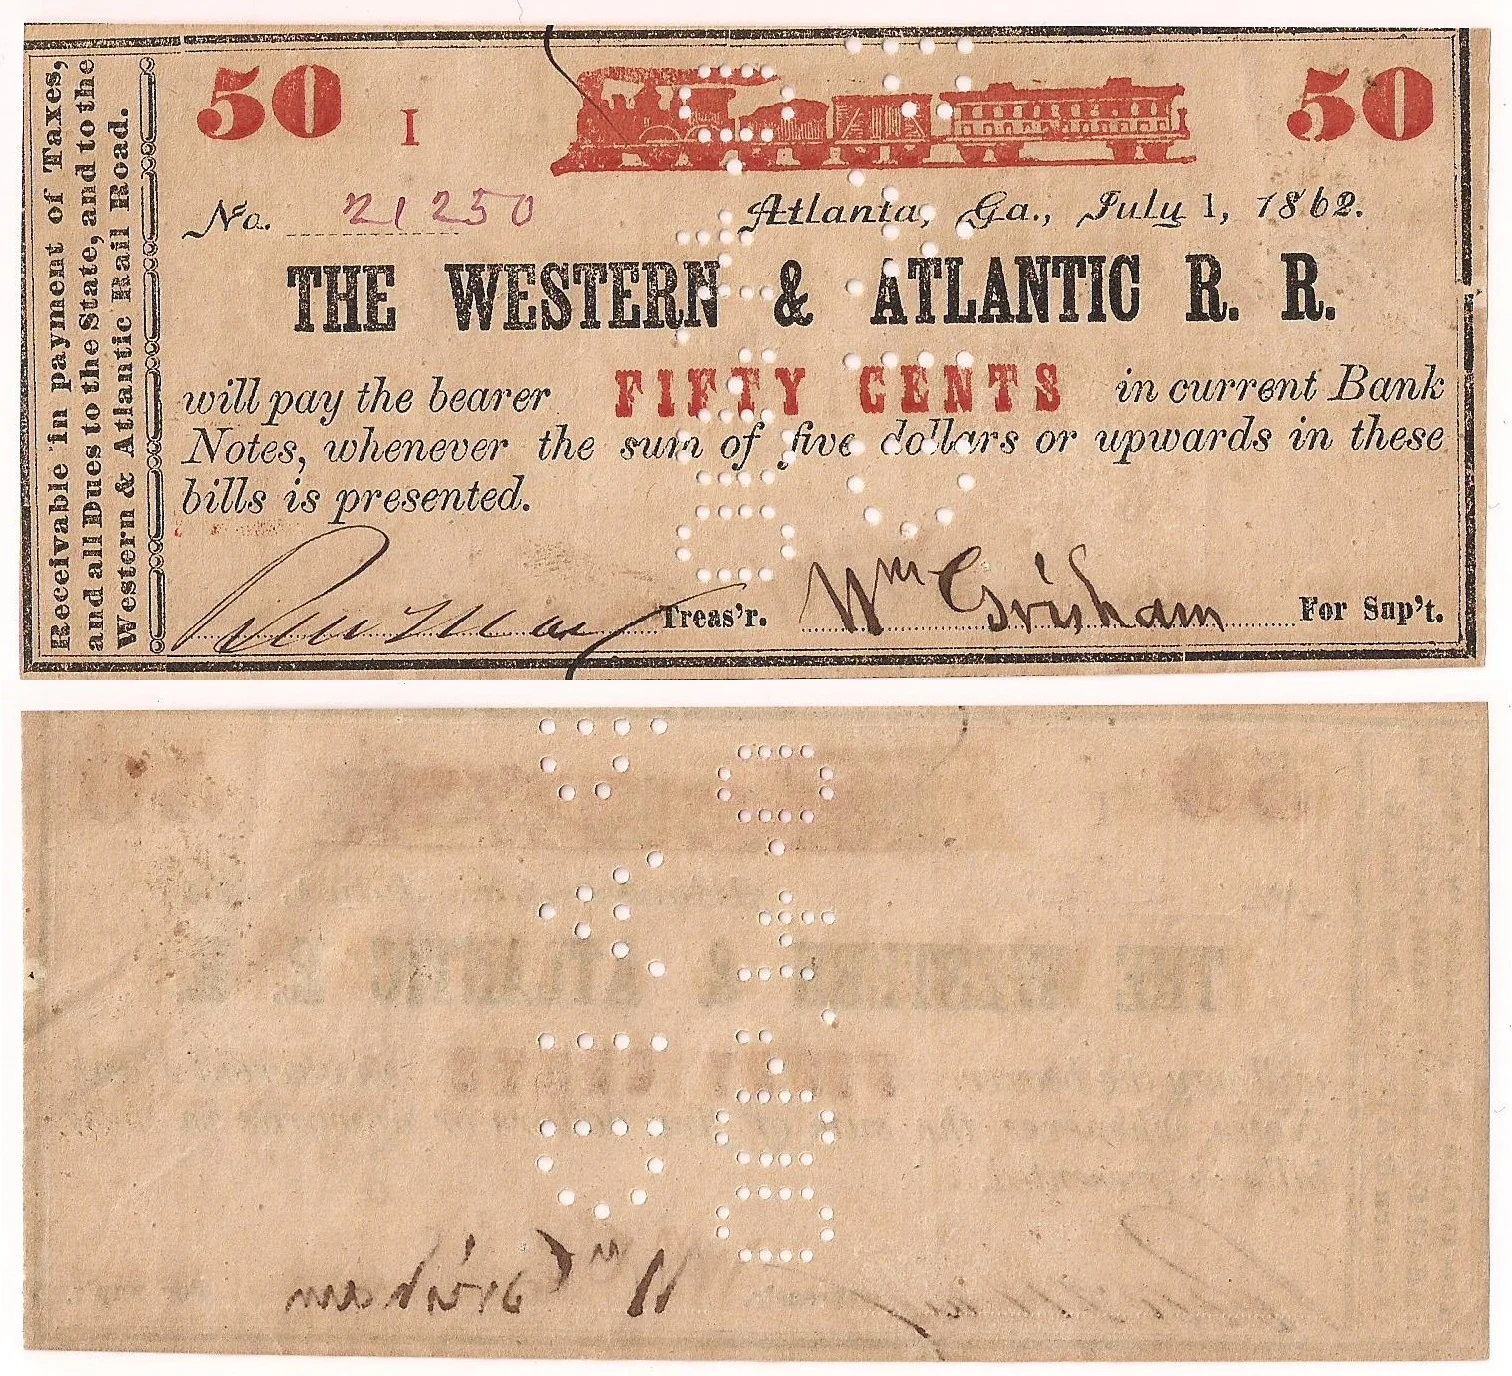 Receivable in payment of Taxes,
and all Dues to the State, and to the
Western & Atlantic Rail Road.
50 I 50
No. 21250 Atlanta, Ga., July 1, 1862.
THE WESTERN & ATLANTIC R. R.
will pay the bearer FIFTY CENTS in current Bank
Notes, whenever the sum of five dollars or upwards in these
bills is presented.
Treas'r. Wm Grisham For Sup't.